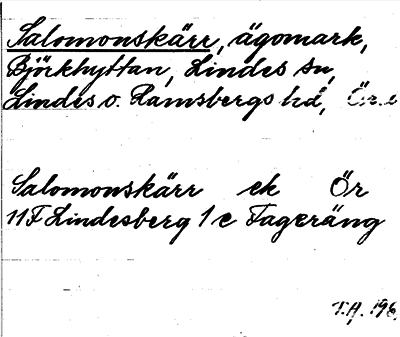 Salomonskärr, ägomark,
Björkhyttan, Lindes sn,
Lindes o. Ramsbergs hd,
Salomonskärr ek Ör
11F Lindesberg 1e Tageräng
T.H. 196